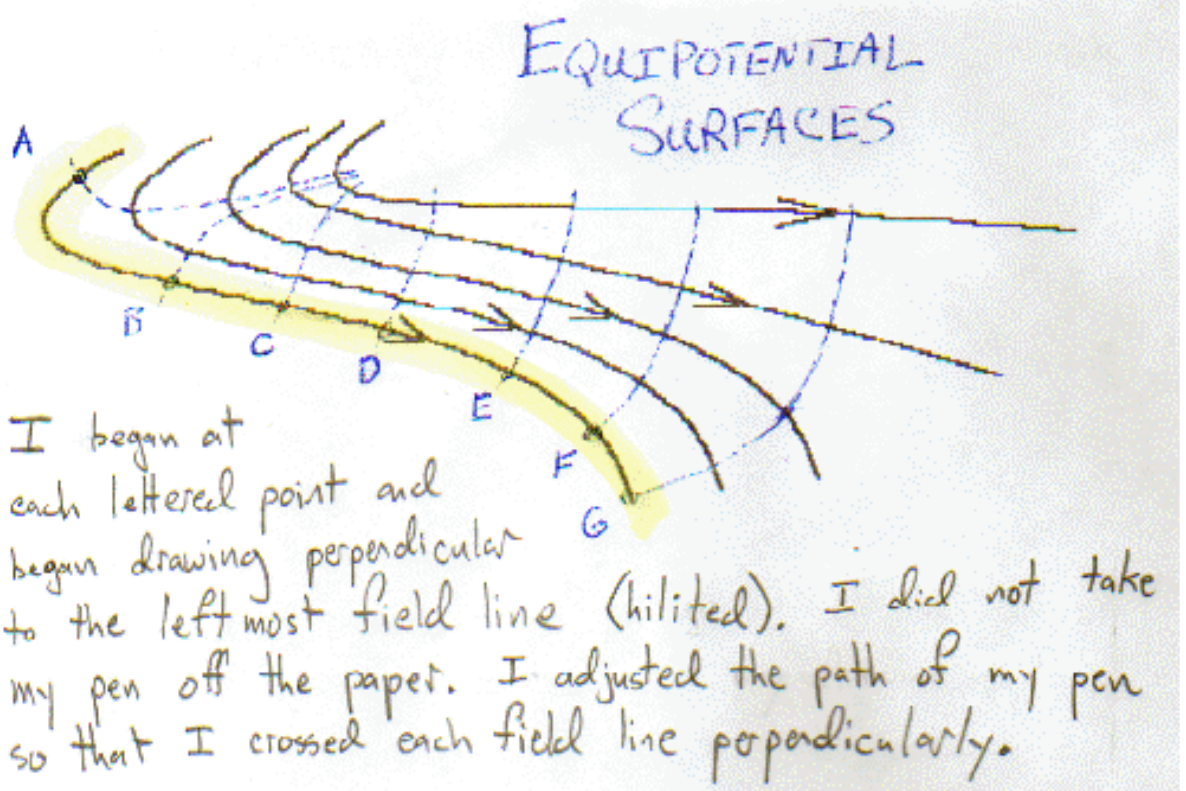 EQUIPOTENTIAL
SURFACES
A
B
C
D
E
F
G
I began at
each lettered point and
began drawing perpendicular
to the leftmost field line (hilited). I did not take
my pen off the paper. I adjusted the path of my pen
so that I crossed each field line perpendicularly.